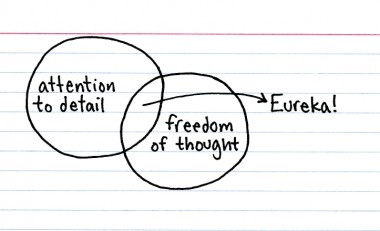 attention
to detail
Eureka!
freedom
of thought